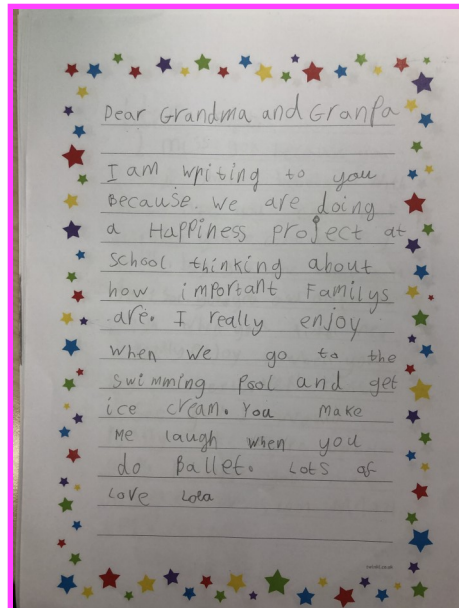 Dear Grandma and Granpa
I am writing to you
Because. We are doing
a Happiness project at
school thinking about
how important Familys
are. I really enjoy
when we go to the
swimming Pool and get
ice cream. You make
Me laugh when you
do Ballet. Lots of
Love Lola